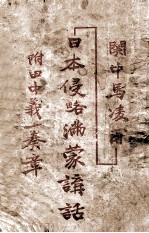 關中馬凌甫
日本侵略滿蒙講話
附田中義一奏章